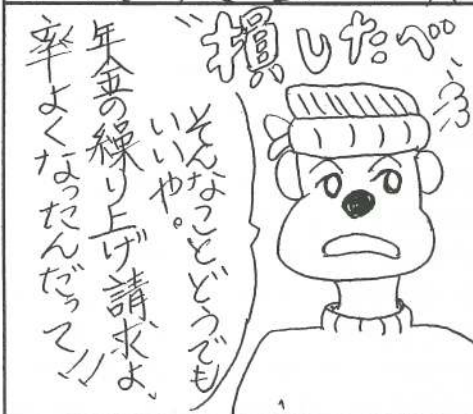 損したべ
そんなことどうでも
いいや。
年金の繰り上げ請求よ、
率よくなったんだって!!